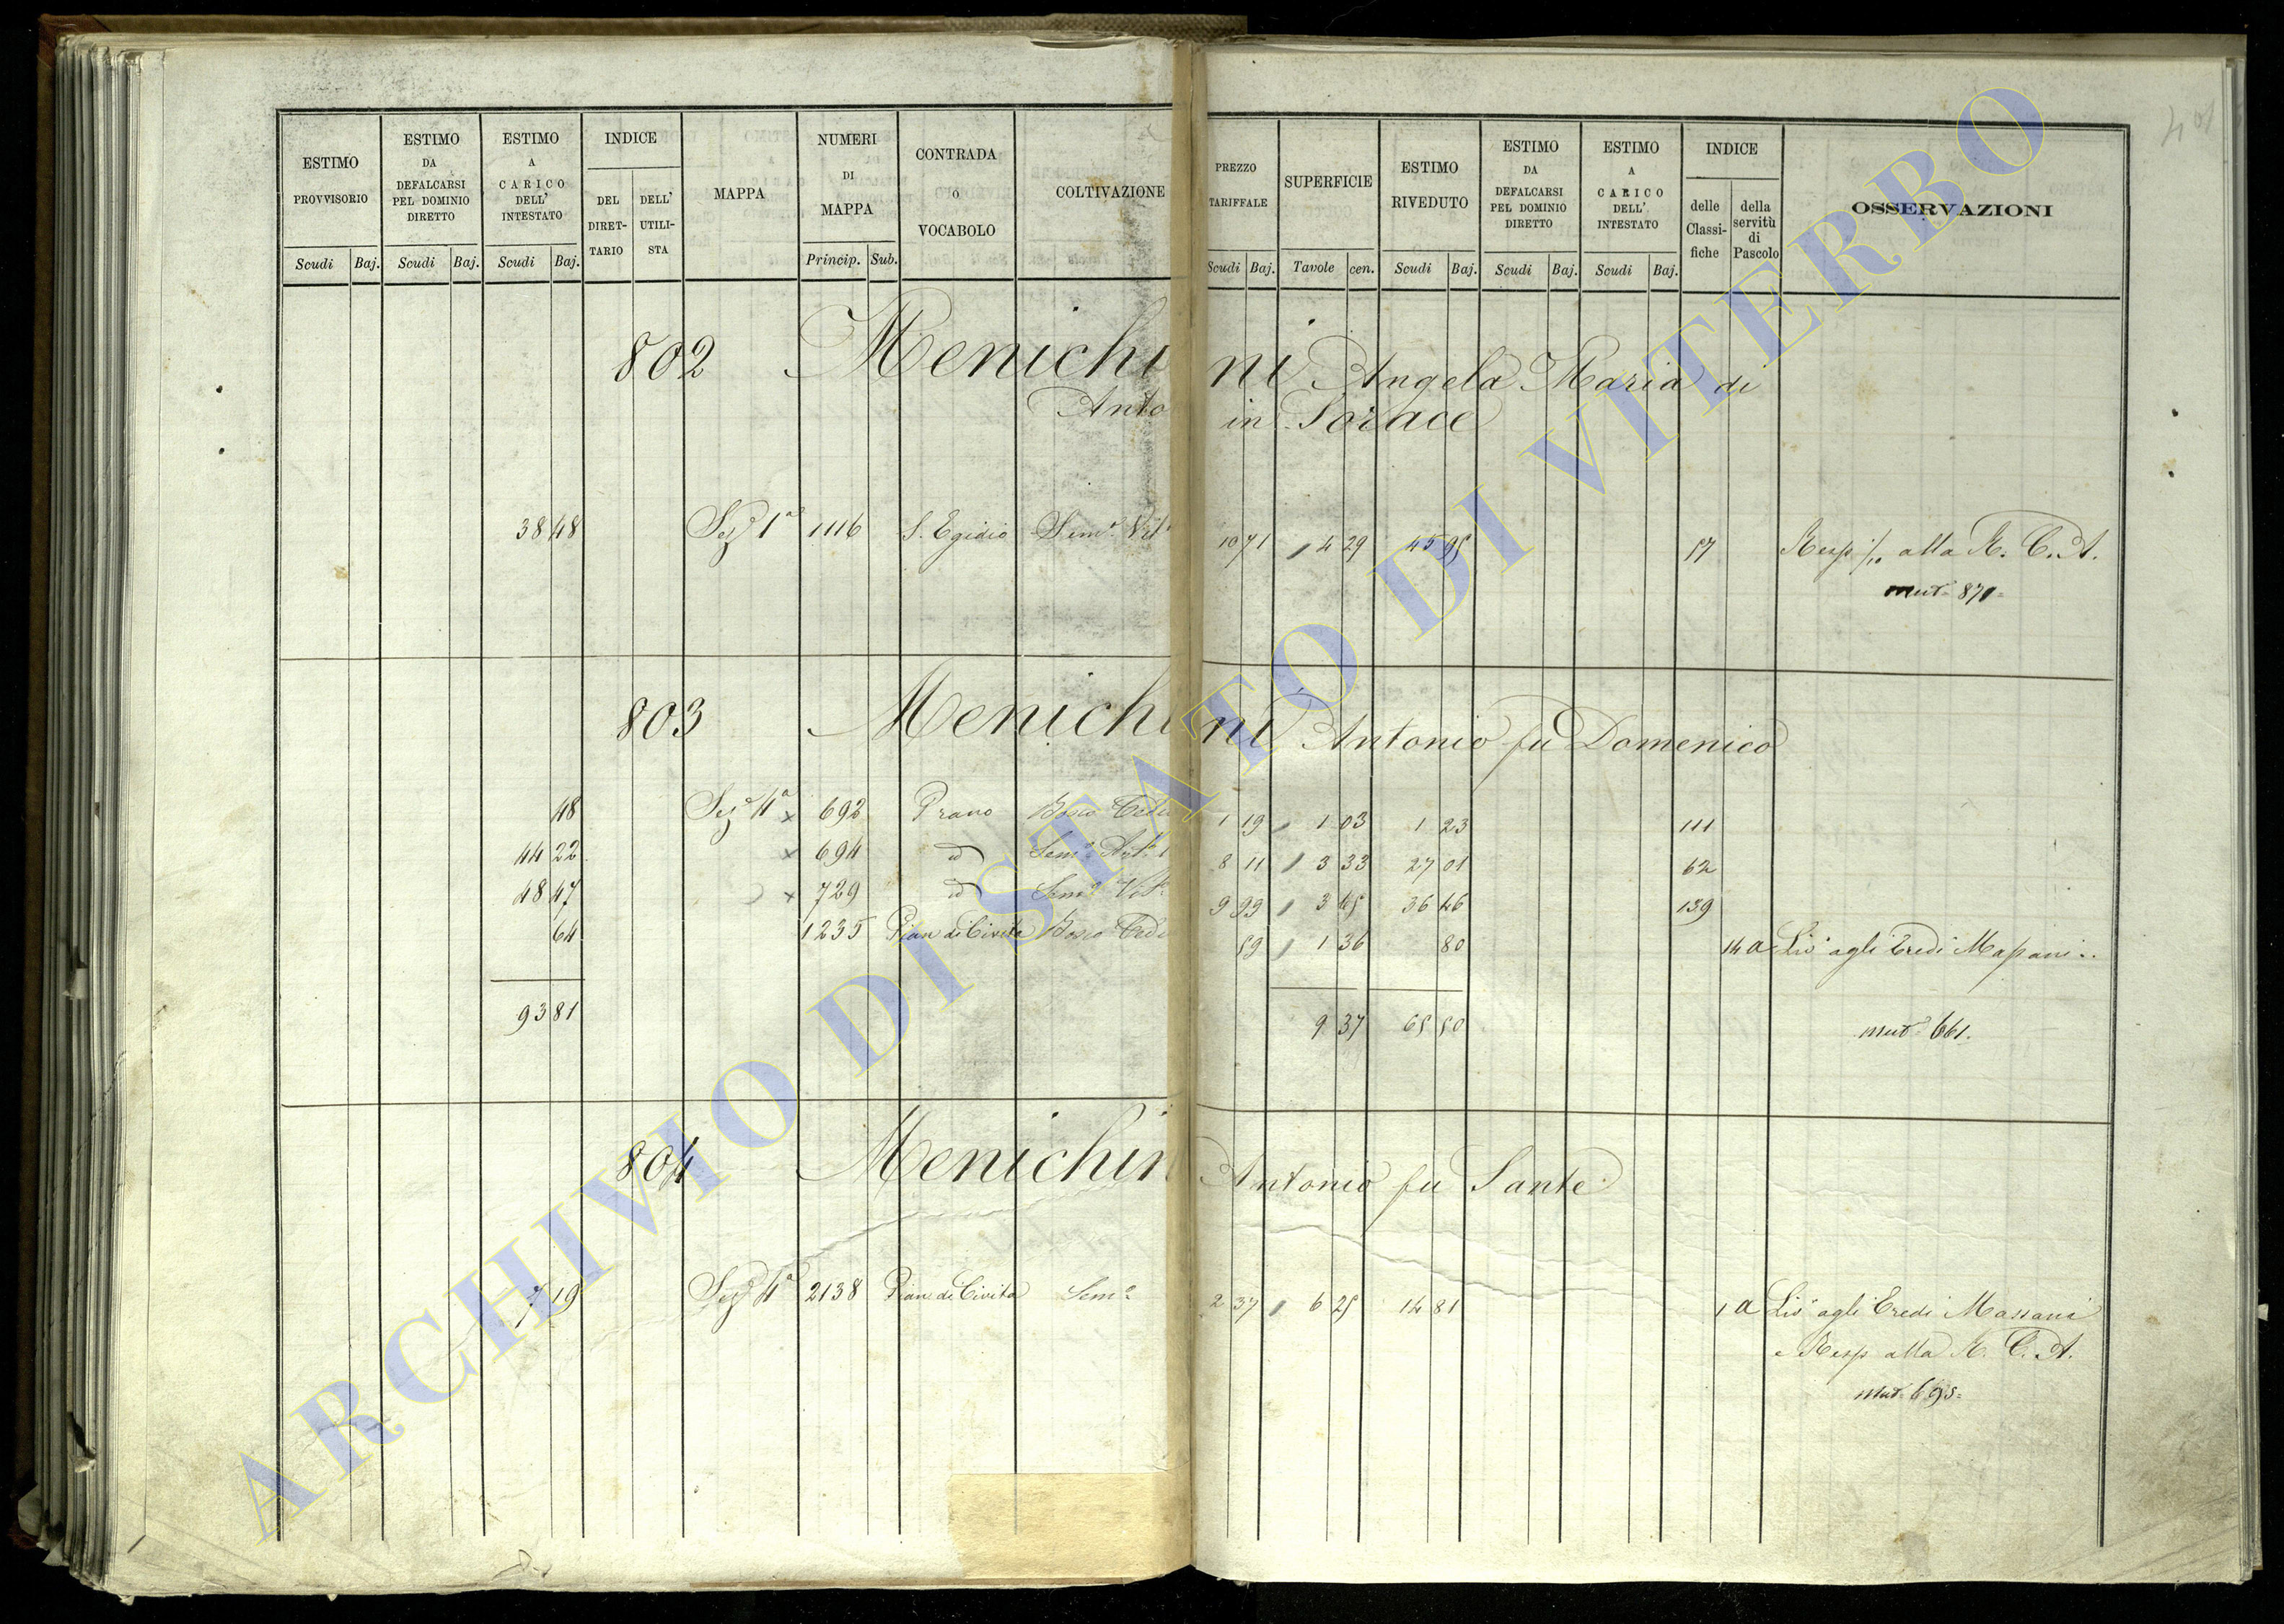 401
ESTIMO PROVVISORIO Scudi Baj.
ESTIMO DA DEFALCARSI PEL DOMINIO DIRETTO Scudi Baj.
ESTIMO A CARICO DELL' INTESTATO Scudi Baj.
INDICE DEL DIRETTARIO DELL' UTILISTA
MAPPA
NUMERI DI MAPPA Princip. Sub.
CONTRADA o VOCABOLO
COLTIVAZIONE
PREZZO TARIFFALE Scudi Baj.
SUPERFICIE Tavole cen.
ESTIMO RIVEDUTO Scudi Baj.
ESTIMO DA DEFALCARSI PEL DOMINIO DIRETTO Scudi Baj.
ESTIMO A CARICO DELL' INTESTATO Scudi Baj.
INDICE delle Classifiche della servitù di Pascolo
OSSERVAZIONI
802 Menichini Angela Maria di
Anto in Sorace
38 48 Sez. 1ª 1116 S. Egidio Semº Vitº 10 71 4 29 45 95 57 Resp /10 alla R. C. A.
mut. 871
803 Menichini Antonio fu Domenico
48 Sezº 4ª x 692 Prano Bosco Cedu 1 19 1 03 1 23 111
44 22 x 694 id Semº 8 11 3 33 27 01 62
48 47 x 729 id Semº Vitº 9 99 3 65 36 46 139
64 1235 Pian di Civita Bosco Ced 59 1 36 80 14 a Livº agli Eredi Massani
93 81 9 37 65 50 mutº 661.
804 Menichin Antonio fu Sante
7 19 Sezº 4ª 2138 Pian di Civita Semº 2 37 6 25 14 81 1 a Livº agli Eredi Massani
e Resp alla R. C. A.
mut. 695
ARCHIVIO DI STATO DI VITERBO